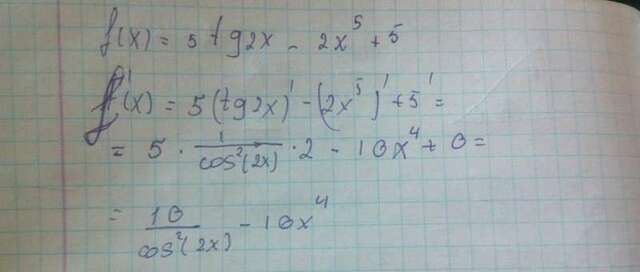 f(x) = 5 tg2x - 2x⁵ + 5
f'(x) = 5(tg2x)' - (2x⁵)' + 5' =
= 5 · 1/cos²(2x) · 2 - 10x⁴ + 0 =
= 10/cos²(2x) - 10x⁴